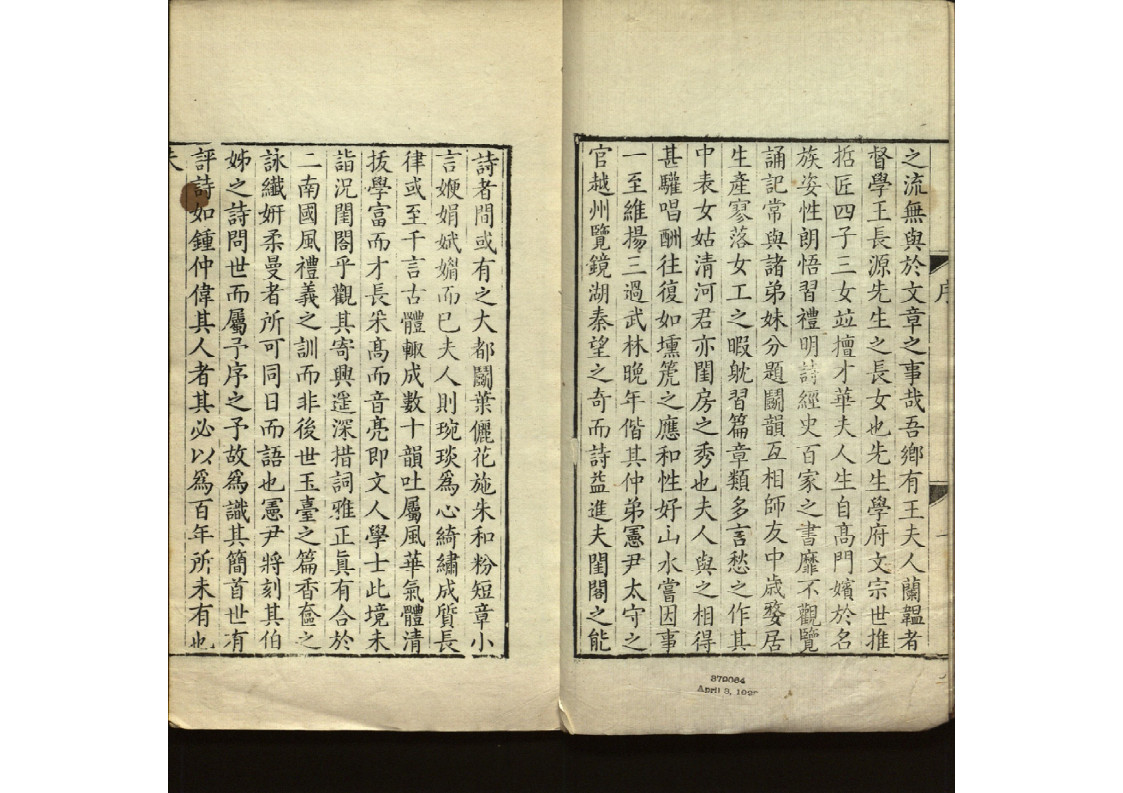 之流無與於文章之事哉吾鄉有王夫人蘭韞者
督學王長源先生之長女也先生學府文宗世推
喆匠四子三女竝擅才華夫人生自髙門嬪於名
族姿性朗悟習禮明詩經史百家之書靡不觀覽
誦記常與諸弟妹分題鬭韻互相師友中歲嫠居
生產寥落女工之暇躭習篇章類多言愁之作其
中表女姑清河君亦閨房之秀也夫人與之相得
甚驩唱酬往復如壎箎之應和性好山水嘗因事
一至維揚三過武林晚年偕其仲弟憲尹太守之
官越州覽鏡湖秦望之奇而詩益進夫閨閣之能
序
一
379064
April 3, 192
詩者間或有之大都鬭葉儷花施朱和粉短章小
言嫽娟娬媚而已夫人則琬琰爲心綺繡成質長
律或至千言古體輙成數十韻吐屬風華氣體清
拔學富而才長采髙而音亮即文人學士此境未
詣況閨閤乎觀其寄興遥深措詞雅正眞有合於
二南國風禮義之訓而非後世玉臺之篇香奩之
詠纖妍柔曼者所可同日而語也憲尹將刻其伯
姊之詩問世而屬予序之予故爲識其簡首世有
評詩如鍾仲偉其人者其必以爲百年所未有也
夫